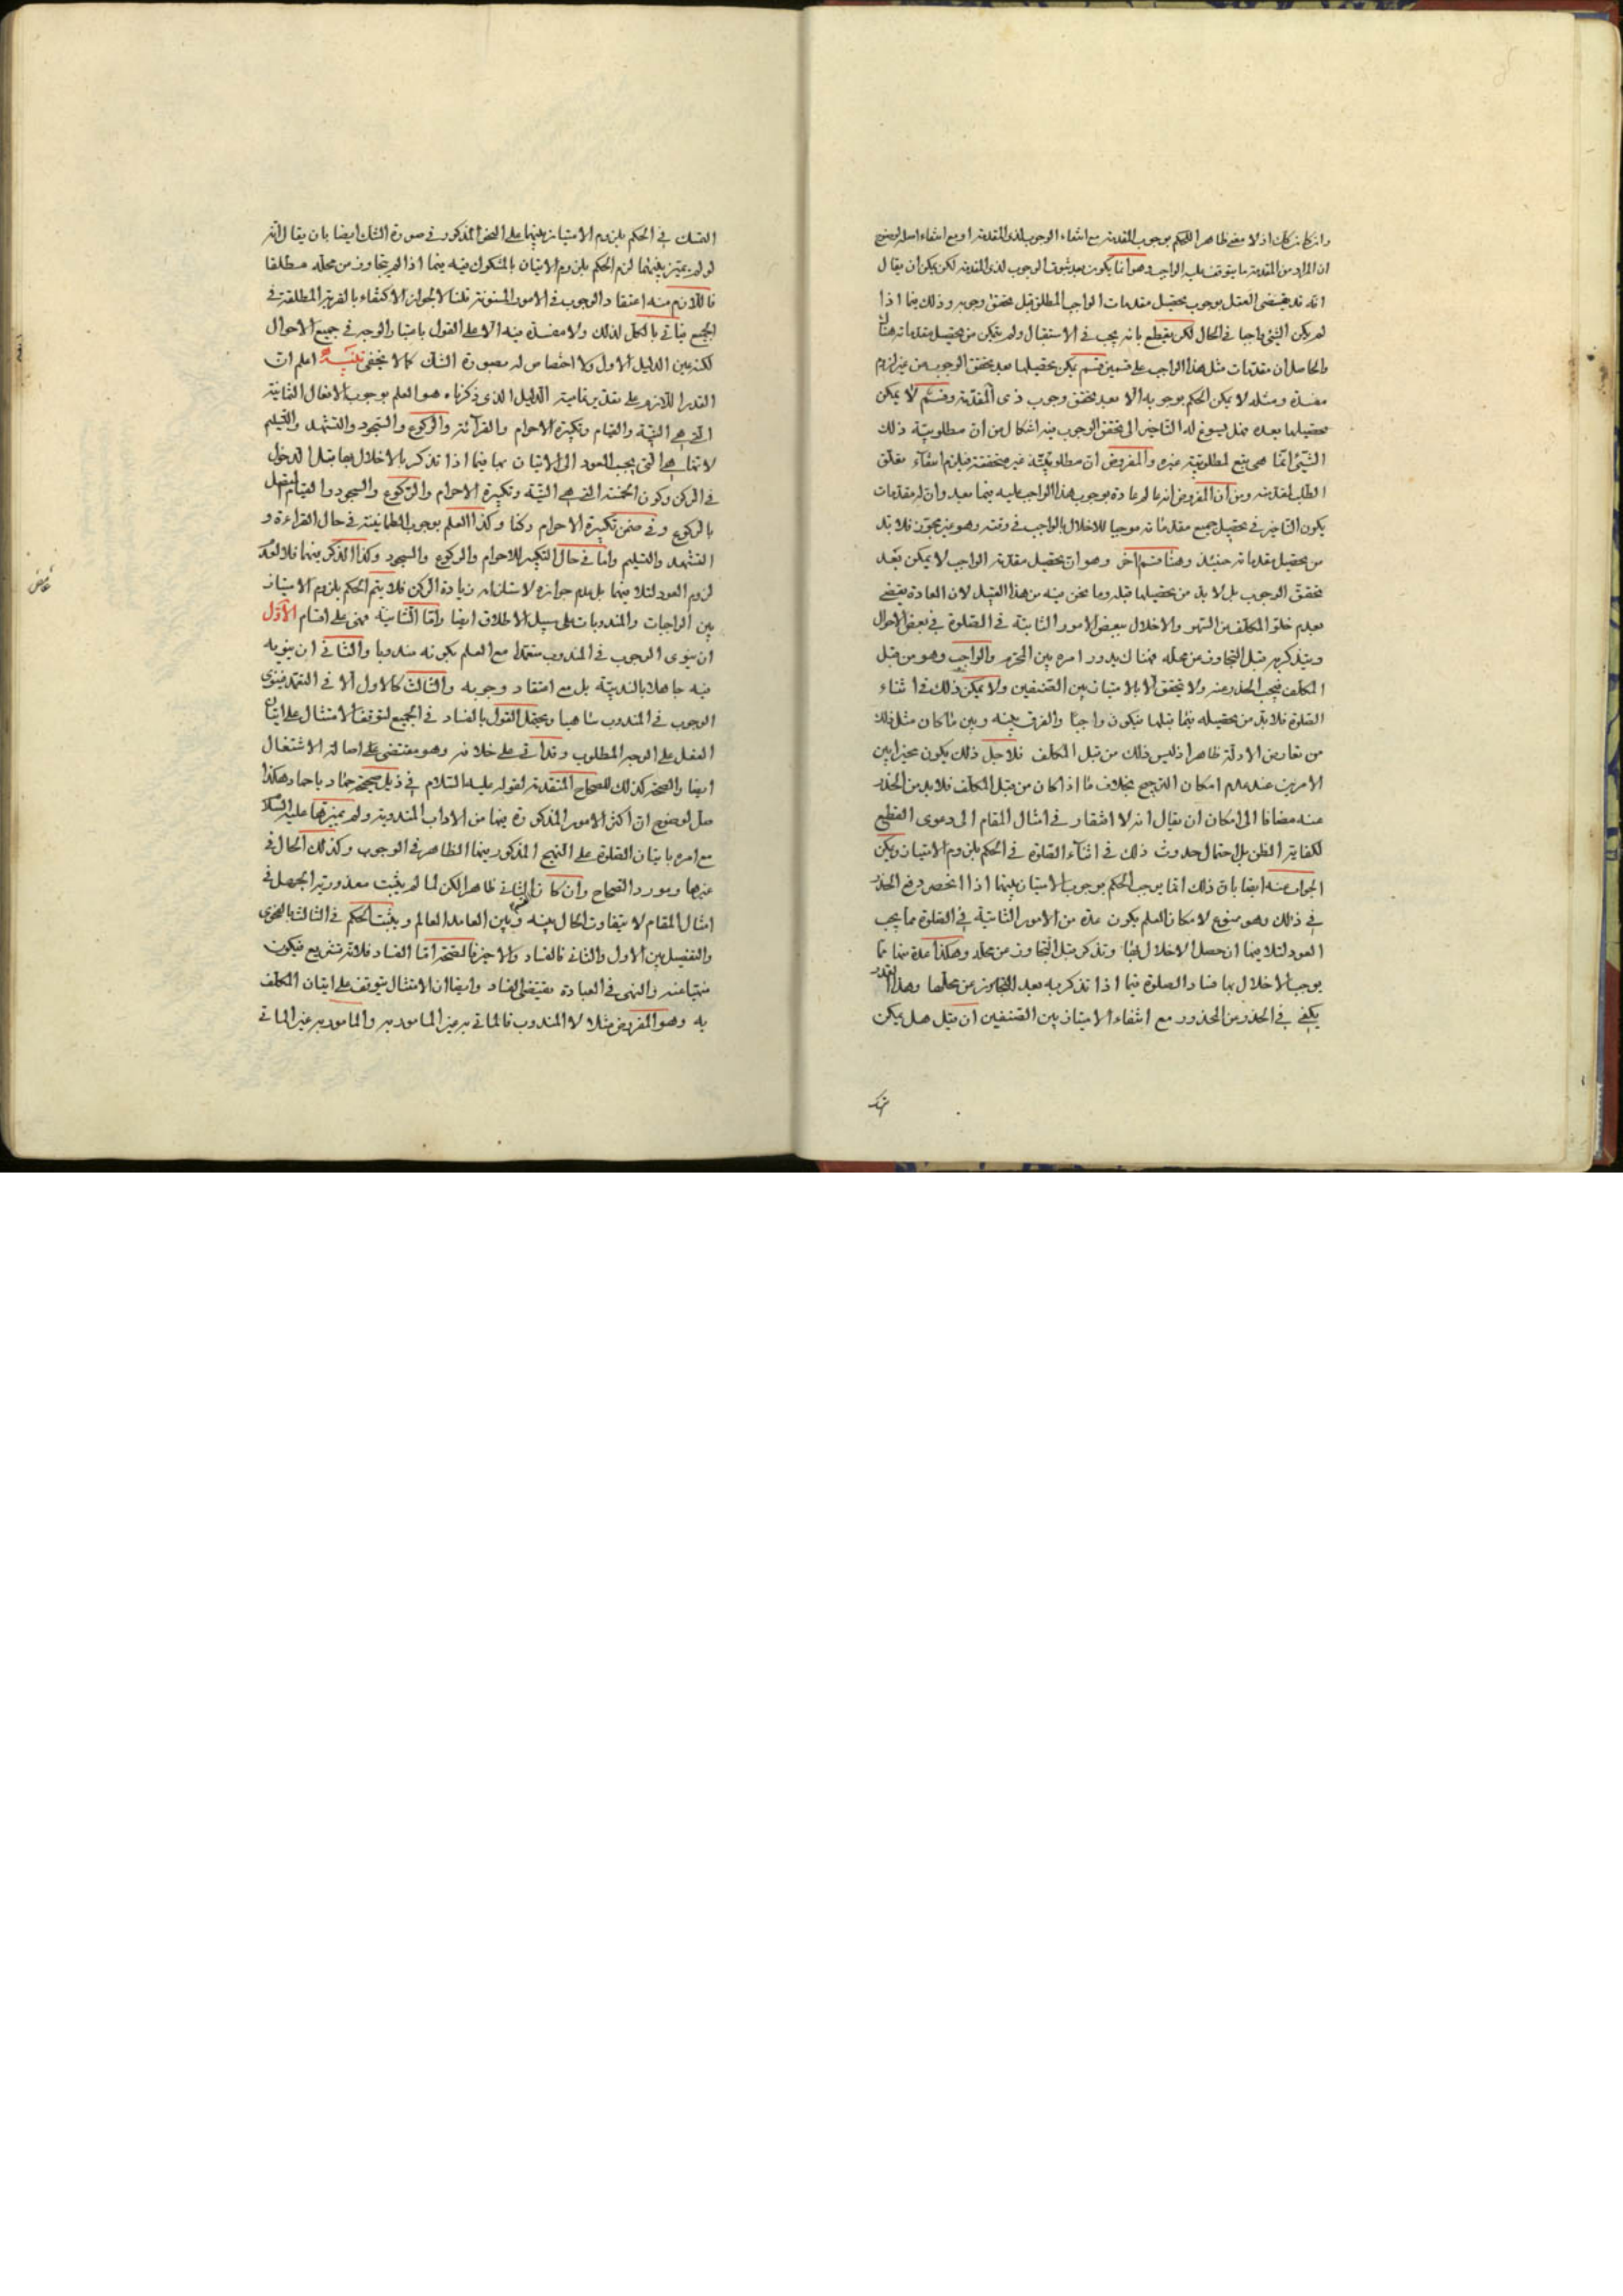 وان كان كك اذ لا معنى ظاهرا للحكم بوجوب المقدمة مع انتفاء الوجوب لذى المقدمة او مع انتفاء اصله لوضوح
ان المراد من المقدمة ما يتوقف عليه الواجب وهو انما يكون بعد ثبوت الوجوب لذى المقدمة لكن يمكن ان يقال
انه قد يقتضى العقل بوجوب تحصيل مقدمات الواجب المطلق قبل تحقق وجوبه وذلك فيما اذا
لم يكن الشئ واجبا فى الحال لكن يقطع بانه يجب فى الاستقبال ولم يتمكن من تحصيل مقدماته هناك
والحاصل ان مقدمات مثل هذا الواجب على قسمين قسم يمكن تحصيلها بعد تحقق الوجوب من غير لزوم
مفسدة ومثله لا يمكن الحكم بوجوبه الا بعد تحقق وجوب ذى المقدمة وقسم لا يمكن
تحصيلها بعده فهل يسوغ له التاخير الى تحقق الوجوب فيه اشكال من ان مطلوبية ذلك
الشئ انما هى تبع لمطلوبية غيره والمفروض ان مطلوبيته غير متحققة فيلزم انتفاء تعلق
الطلب لمقدمته ومن ان المفروض انه عالم عادة بوجوب هذا الواجب عليه فيما بعد وان له مقدمات
يكون التاخير فى تحصيل جميع مقدماته موجبا للاخلال بالواجب فى وقته وهو غير مجوز فلا بد
من تحصيل مقدماته حينئذ وهنا قسم آخر وهو ان تحصيل مقدمة الواجب لا يمكن بعد
تحقق الوجوب بل لا بد من تحصيلها قبله وما نحن فيه من هذا القبيل لان العادة يقتضى
بعدم خلو المكلف من السهو والاخلال ببعض الامور الثابتة فى الصلوة فى بعض الاحوال
ويتذكر به قبل التجاوز عن محله فهناك يدور امره بين المحرم والواجب وهو من قبل
المكلف فيجب الحذر عنه ولا يتحقق الا بالامتياز بين الصنفين ولا يمكن ذلك فى اثناء
الصلوة فلا بد من تحصيله فيما قبلها فيكون واجبا والفرق بينه وبين ما كان مثل ذلك
من تعارض الادلة ظاهر اذ ليس ذلك من قبل المكلف فلاجل ذلك يكون مخيرا بين
الامرين عند عدم امكان الترجيح بخلاف ما اذا كان من قبل المكلف فلا بد من الحذر
عنه مضافا الى امكان ان يقال انه لا افتقار فى امثال المقام الى دعوى القطع
لكفاية الظن بل احتمال حدوث ذلك فى اثناء الصلوة فى الحكم بلزوم الامتياز ويمكن
الجواب عنه ايضا بان ذلك انما يوجب الحكم بوجوب الامتياز بينهما اذا انحصر دفع الحذر
فى ذلك وهو ممنوع لامكان العلم بكون عدة من الامور الثابتة فى الصلوة مما يجب
العود لتلافيها ان حصل الاخلال بها وتذكر قبل التجاوز من محله وهكذا عدة منها مما
يوجب الاخلال بها فساد الصلوة فيما اذا تذكر به بعد التجاوز عن محلها وهذا القدر
يكفى فى الحذر من المحذور مع انتفاء الامتياز بين الصنفين ان قيل هل يمكن
التمسك فى الحكم بلزوم الامتياز بينهما على النحو المذكور فى صورة الشك ايضا بان يقال انه
لو لم يميز بينهما لزم الحكم بلزوم الاتيان بالمشكوك فيه فيما اذا لم يتجاوز من محله مطلقا
فاللازم منه اعتقاد الوجوب فى الامور المسنونة قلنا لا لجواز الاكتفاء بالقربة المطلقة فى
الجميع فياتى بالكل لذلك ولا مفسدة فيه الا على القول باعتبار الوجه فى جميع الاحوال
لكنه عين الدليل الاول ولا اختصاص له بصورة الشك كما لا يخفى تنبيه اعلم ان
القدر اللازم على تقدير تمامية الدليل الذى ذكرناه هو العلم بوجوب الافعال الثمانية
التى هى النية والقيام وتكبيرة الاحرام والقراءة والركوع والسجود والتشهد والتسليم
لانها هى التى يجب العود الى الاتيان بها فيما اذا تذكر بالاخلال بها قبل الدخول
فى الركن وكون الخمسة التى هى النية وتكبيرة الاحرام والركوع والسجود والقيام المتصل
بالركوع وفى ضمن تكبيرة الاحرام ركنا وكذا العلم بوجوب الطمانينة فى حال القراءة و
التشهد والتسليم واما فى حال التكبير للاحرام والركوع والسجود وكذا الذكر فيهما فلا لعدم
لزوم العود لتلافيها بل عدم جوازه لاستلزامه زيادة الركن فلا يتم الحكم بلزوم الامتياز
بين الواجبات والمندوبات على سبيل الاطلاق ايضا واما الثانية فهى على اقسام الاول
ان ينوى الوجوب فى المندوب متعمدا مع العلم بكونه مندوبا والثانى ان ينويه
فيه جاهلا بالندبية بل مع اعتقاد وجوبه والثالث كالاول الا فى التعمد فينوى
الوجوب فى المندوب ساهيا ويحتمل القول بالفساد فى الجميع لتوقف الامتثال على اتيان
الفعل على الوجه المطلوب وقد اتى على خلافه وهو مقتضى اصالة الاشتغال
ايضا والصحة كذلك للصحاح المتقدمة لقوله عليه السلام فى ذيل صحيحة حماد يا حماد هكذا
صل لوضوح ان اكثر الامور المذكورة فيها من الاداب المندوبة ولم يميزها عليه السلام
مع امره باتيان الصلوة على النهج المذكور فيها الظاهر فى الوجوب وكذلك الحال فى
غيرها ومورد الصحاح وان كان الثانى ظاهرا لكن لما لم يثبت معذورية الجهل فى
امثال المقام لا يتفاوت الحال بينه وبين العامد العالم ويثبت الحكم فى الثالث بالفحوى
والتفصيل بين الاول والثانى فالفساد والاخير فالصحة اما الفساد فلانه تشريع فيكون
منهيا عنه والنهى فى العبادة يقتضى الفساد وايضا ان الامتثال يتوقف على اتيان المكلف
به وهو المفروض مثلا لا المندوب فالماتى به غير المامور به والمامور به غير الماتى